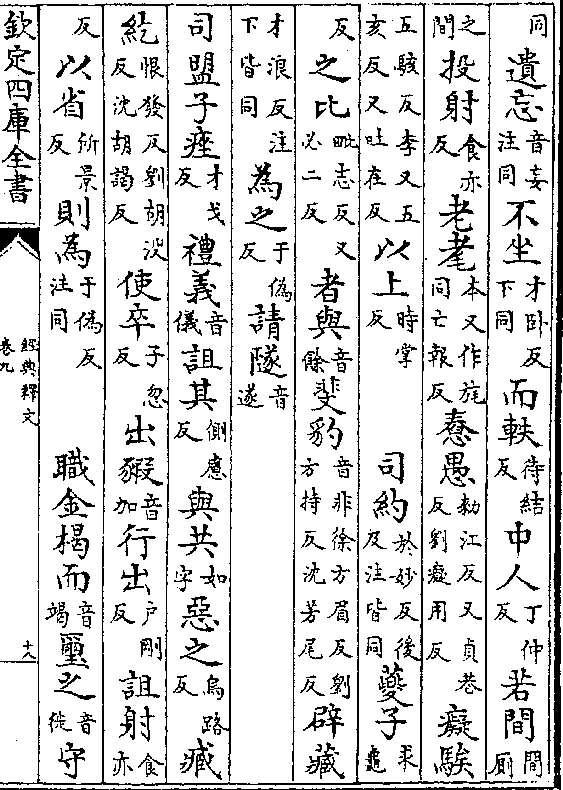 同遺忘音妄注同不坐才卧反下同而軼待結反中人丁仲反若間間厠
之間投射食亦反老耄本又作旄同亡報反惷愚勑江反又貞巷反劉癡用反癡騃
五駭反李又五亥反又吐在反以上時掌反司約於妙反後及注皆同夔子求龜
反之比毗志反又必二反者與音餘斐豹音非徐方眉反劉方持反沈芳尾反辟藏
才浪反注下皆同為之于偽反請隧音遂
司盟子痤才戈反禮義音儀詛其側慮反與共如字惡之烏路反臧
紇恨發反劉胡没反沈胡謁反使卒子忽反出豭音加行出户剛反詛射食亦
反以省所景反則為于偽反注同職金楬而音竭璽之音徙守
欽定四庫全書
經典釋文
卷九
十八